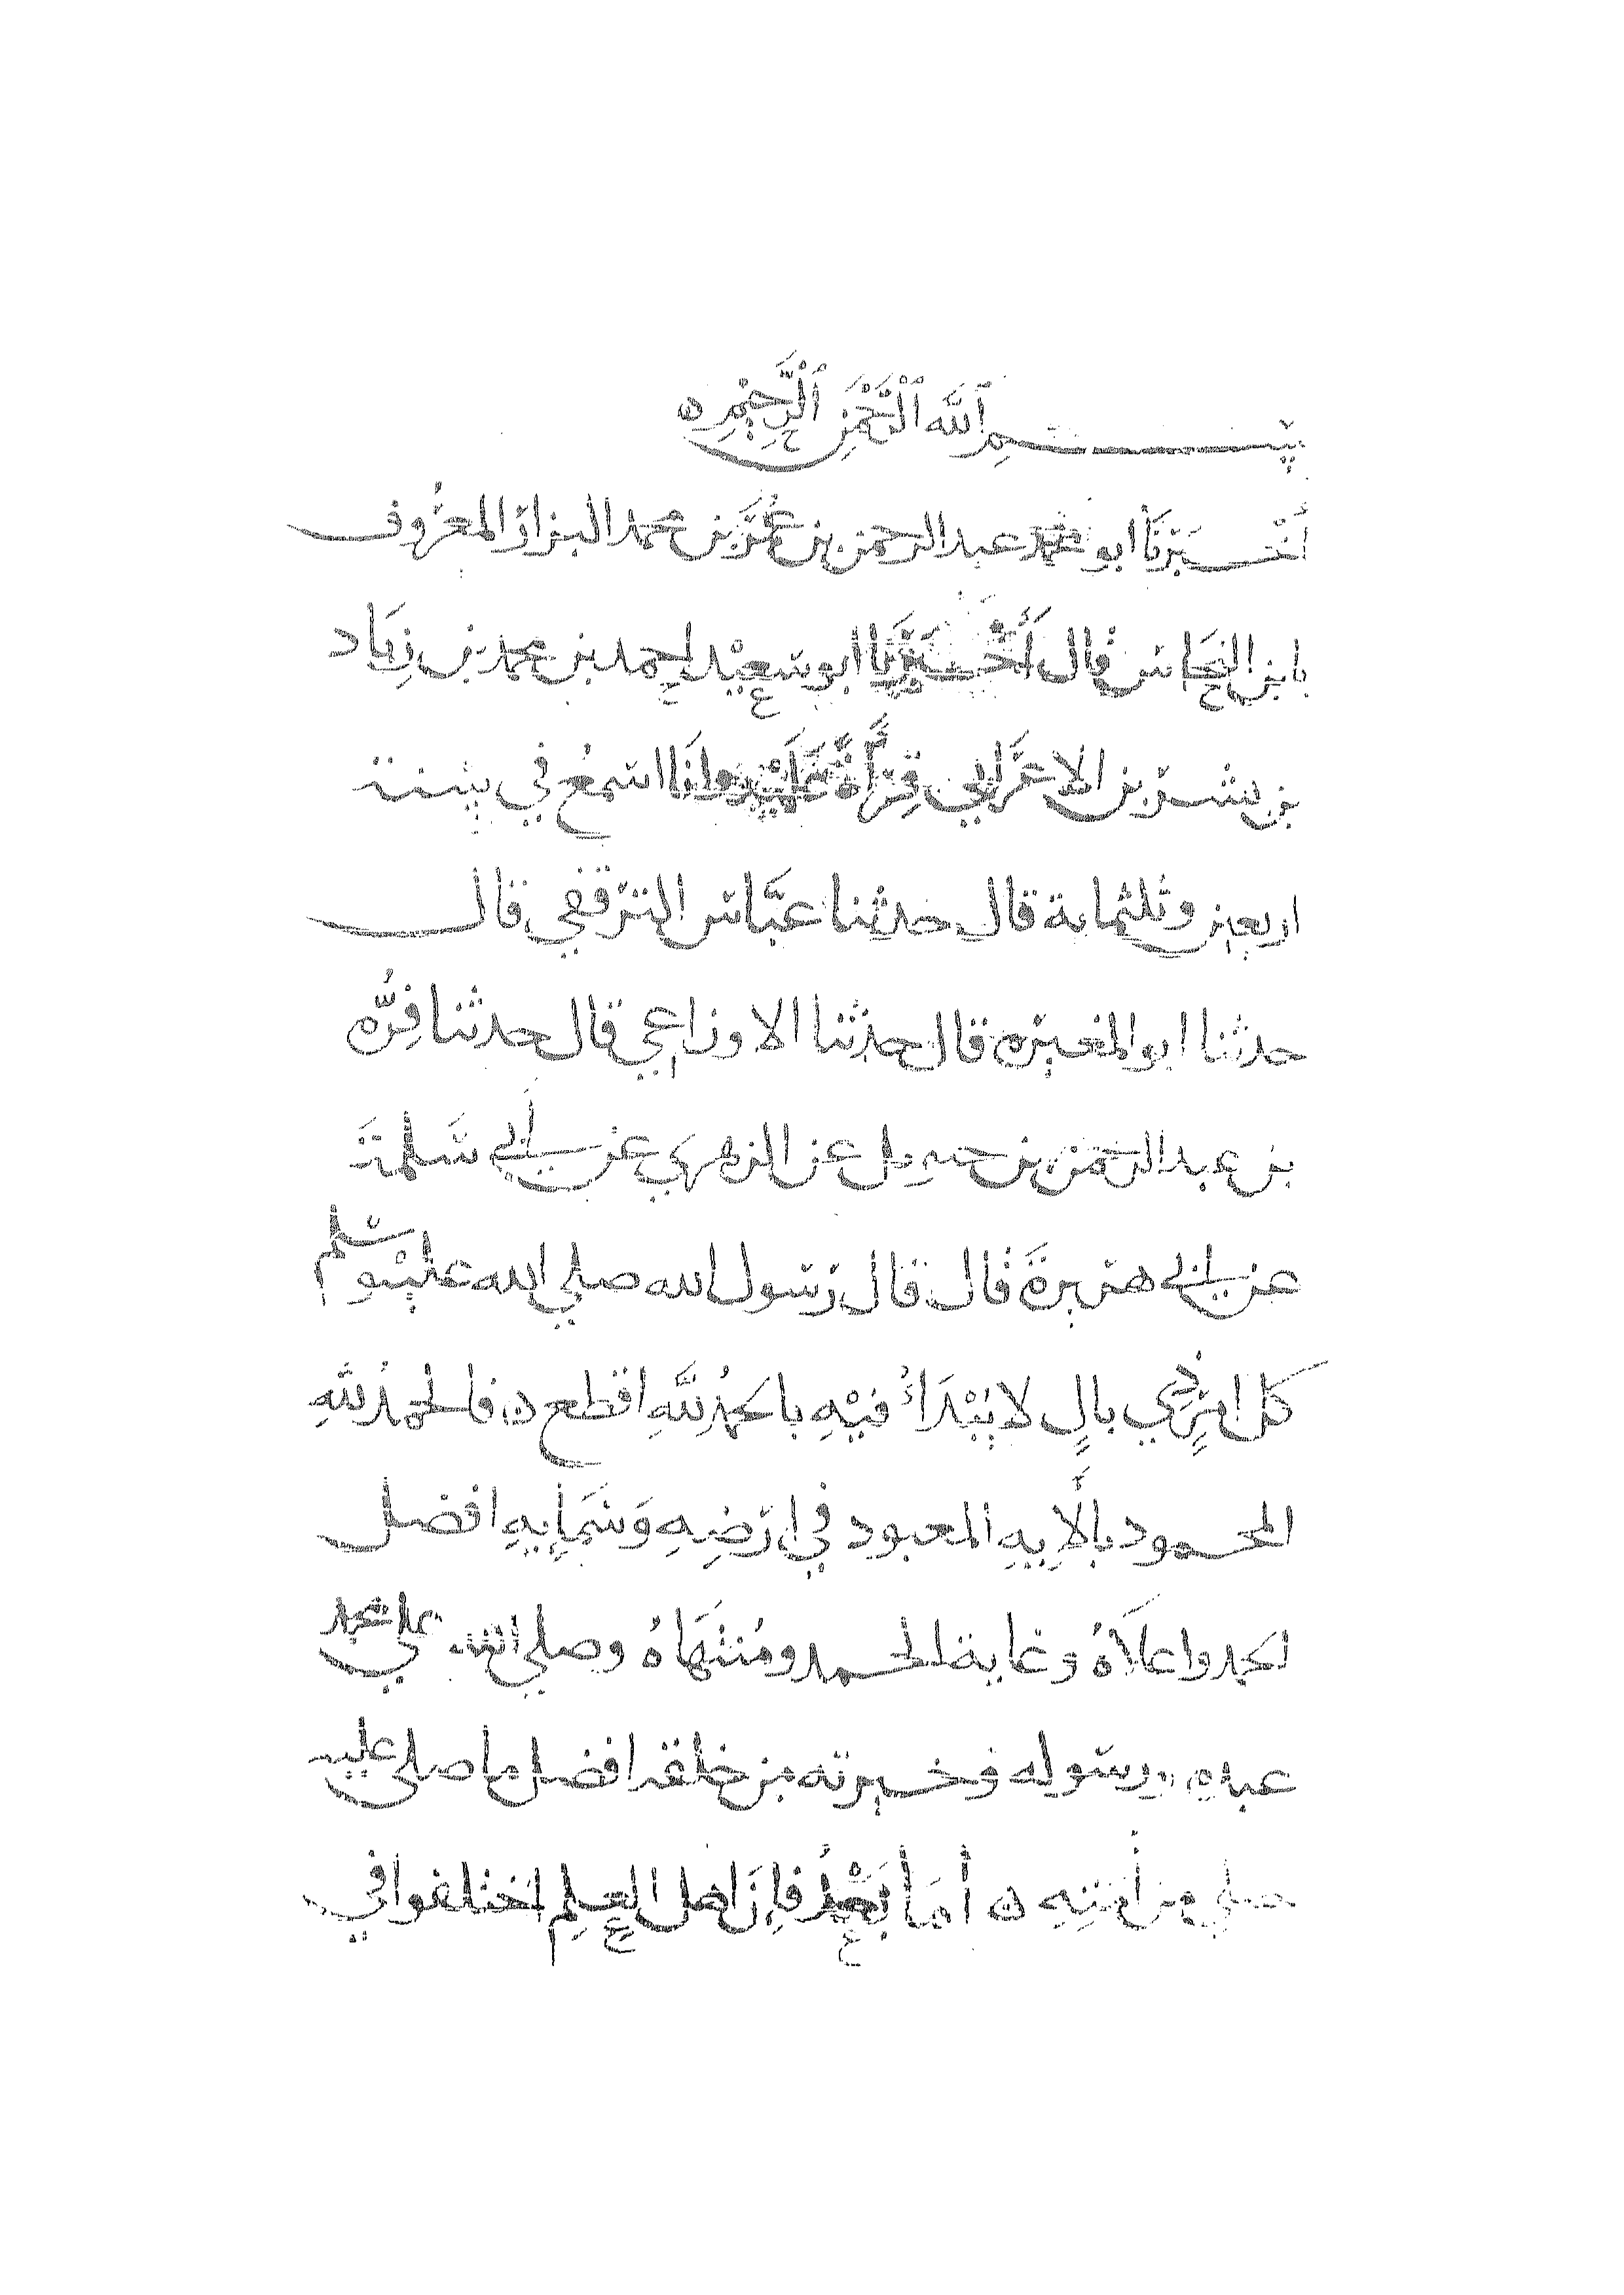 بسم ٱلله ٱلرَّحْمٰنِ ٱلرَّحِيْمِ ه
أَخْبَرَنَا ابو محمد عبد الرحمن بن عُمَر بن محمد البزاز المعْرُوف
بابن النحَاس قال أَخْبَرَنَا ابو سعِيْد احمد بن محمد بن زِيَاد
بن بشر بن الاعرَابي قِرَأَةً عَلَيْهِ وانَا اسمعُ في سنة
اربعين وثلثماية قال حدثنا عبَّاس الترقفي قال
حدثنا ابو المغيره قال حدثنا الاوزاعي قال حدثنا قُرَّه
بن عبد الرحمن بن حيويل عن الزهري عن أبي سَلمَة
عن أبي هريرةَ قال قال رسول الله صلي الله عليْه وسلم
كل امرٍ ذِي بالٍ لا يُبْدَأُ فيْهِ بالحمْدِ للَّهِ اقطع ه فالحمدُ للَّهِ
المحمود بالَايهِ المعبود في ارضِهِ وَسَمَايِهِ افضل
الحمد واعلَاهُ وغاية الحمد ومُنتهَاهُ وصلي الله علي محمد
عبده ورسوله وخيرته من خلقه افضل ما صلي عليه
صلي من أمتِهِ ه أمَا بَعْدُ فإن اهل العِلمِ اختلفوا في